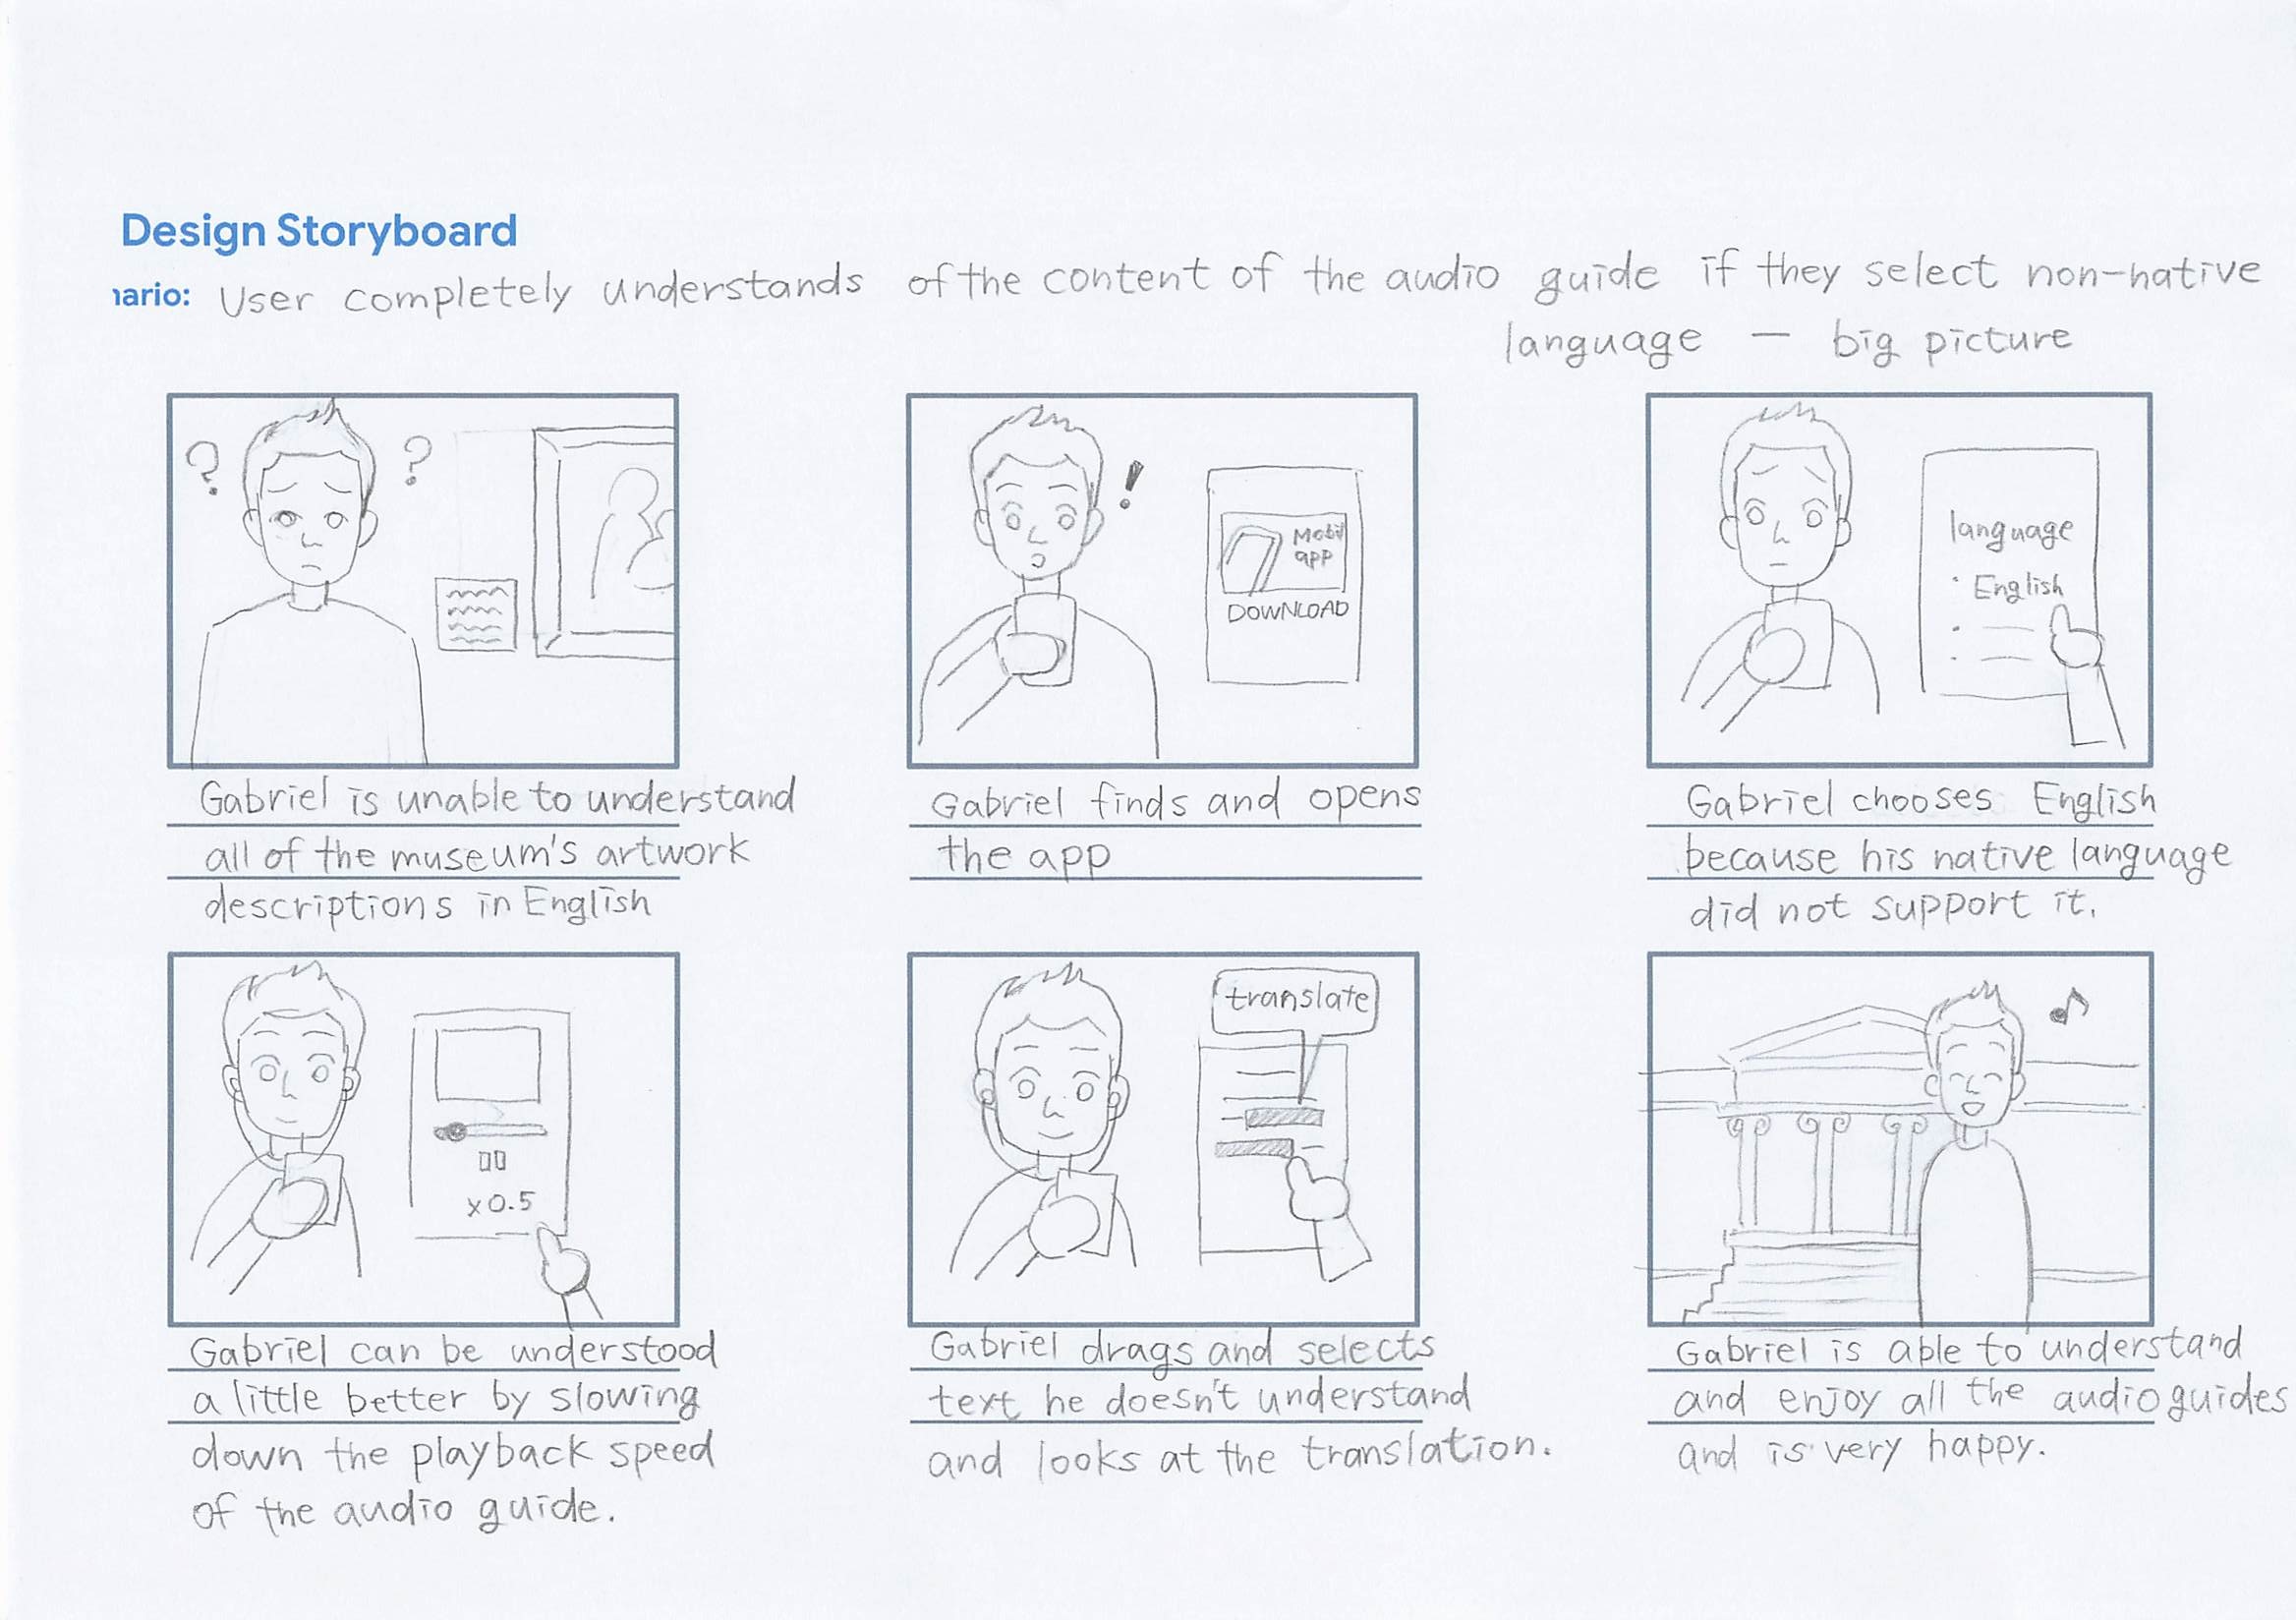 Design Storyboard
nario: User completely understands of the content of the audio guide if they select non-native
language — big picture
? ?
!
Mobil
app
DOWNLOAD
language
· English
·
·
Gabriel is unable to understand
all of the museum's artwork
descriptions in English
Gabriel finds and opens
the app
Gabriel chooses English
because his native language
did not support it.
x0.5
translate
Gabriel can be understood
a little better by slowing
down the playback speed
of the audio guide.
Gabriel drags and selects
text he doesn't understand
and looks at the translation.
Gabriel is able to understand
and enjoy all the audio guides
and is very happy.